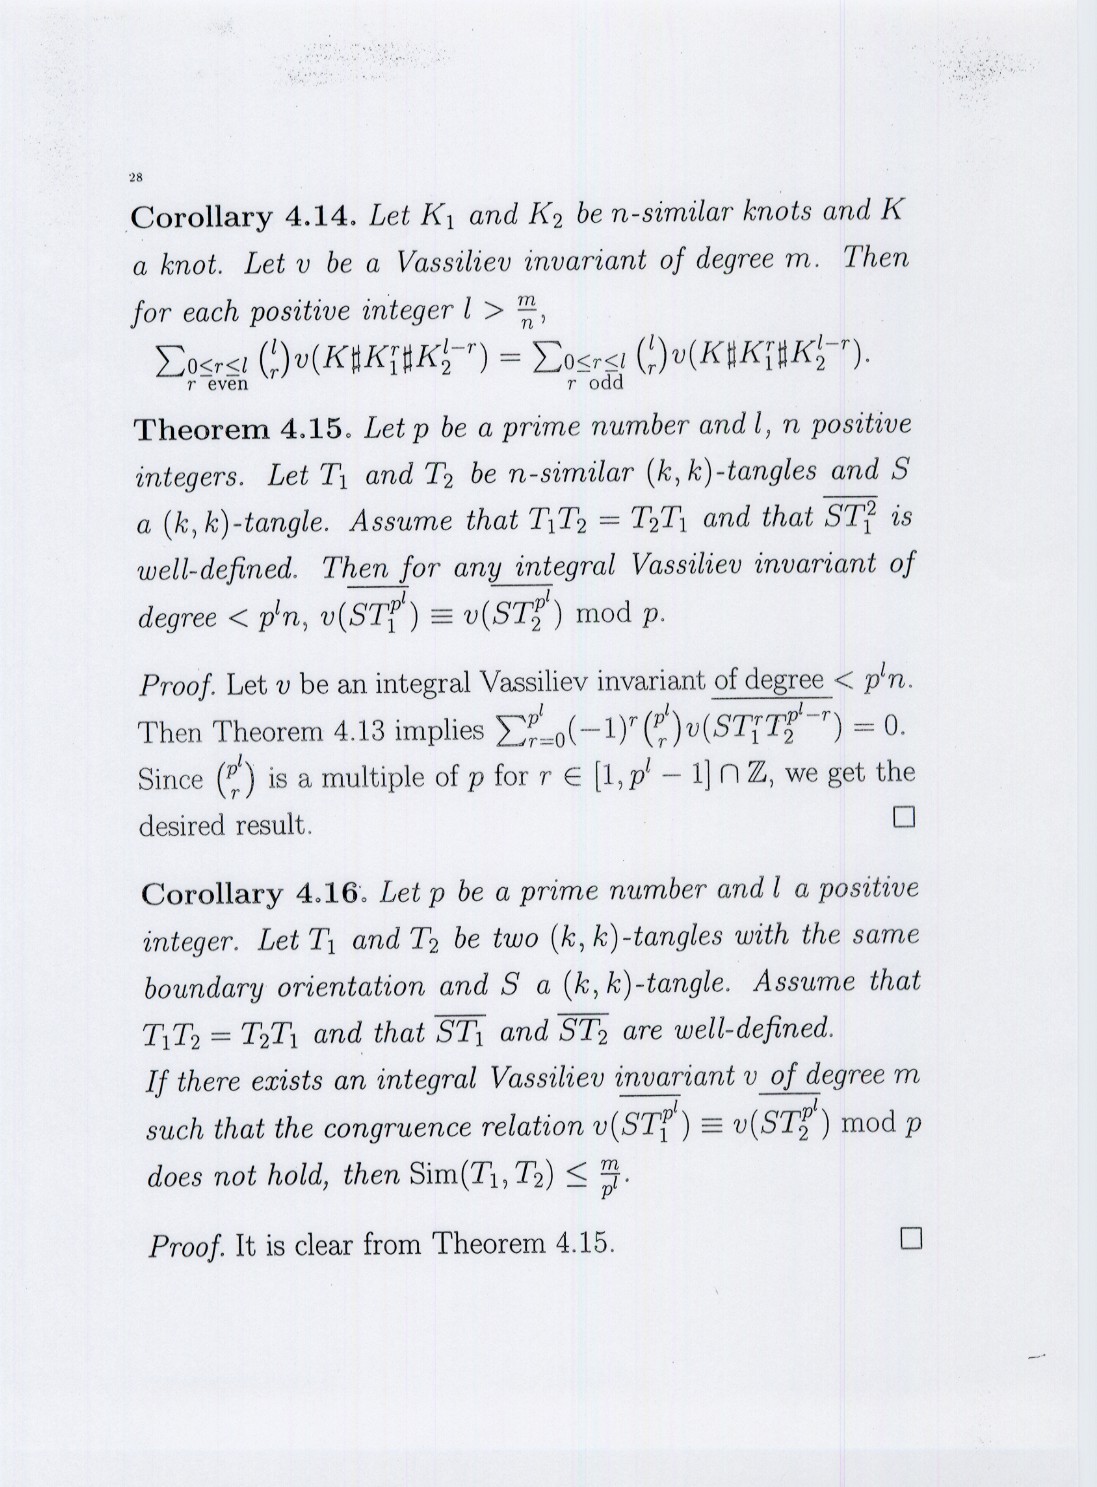 28
Corollary 4.14. Let K₁ and K₂ be n-similar knots and K
a knot. Let v be a Vassiliev invariant of degree m. Then
for each positive integer l > $\frac{m}{n}$,
$\sum_{\substack{0 \le r \le l \\ r \text{ even}}} \binom{l}{r} v(K \sharp K_1^r \sharp K_2^{l-r}) = \sum_{\substack{0 \le r \le l \\ r \text{ odd}}} \binom{l}{r} v(K \sharp K_1^r \sharp K_2^{l-r}).$
Theorem 4.15. Let p be a prime number and l, n positive
integers. Let T₁ and T₂ be n-similar (k, k)-tangles and S
a (k, k)-tangle. Assume that T₁T₂ = T₂T₁ and that $\overline{ST_1^2}$ is
well-defined. Then for any integral Vassiliev invariant of
degree < $p^l n$, $v(\overline{ST_1^{p^l}}) \equiv v(\overline{ST_2^{p^l}})$ mod p.
Proof. Let v be an integral Vassiliev invariant of degree < $p^l n$.
Then Theorem 4.13 implies $\sum_{r=0}^{p^l} (-1)^r \binom{p^l}{r} v(\overline{ST_1^r T_2^{p^l-r}}) = 0.$
Since $\binom{p^l}{r}$ is a multiple of p for $r \in [1, p^l - 1] \cap \mathbb{Z}$, we get the
desired result. □
Corollary 4.16. Let p be a prime number and l a positive
integer. Let T₁ and T₂ be two (k, k)-tangles with the same
boundary orientation and S a (k, k)-tangle. Assume that
T₁T₂ = T₂T₁ and that $\overline{ST_1}$ and $\overline{ST_2}$ are well-defined.
If there exists an integral Vassiliev invariant v of degree m
such that the congruence relation $v(\overline{ST_1^{p^l}}) \equiv v(\overline{ST_2^{p^l}})$ mod p
does not hold, then Sim(T₁, T₂) ≤ $\frac{m}{p^l}$.
Proof. It is clear from Theorem 4.15. □